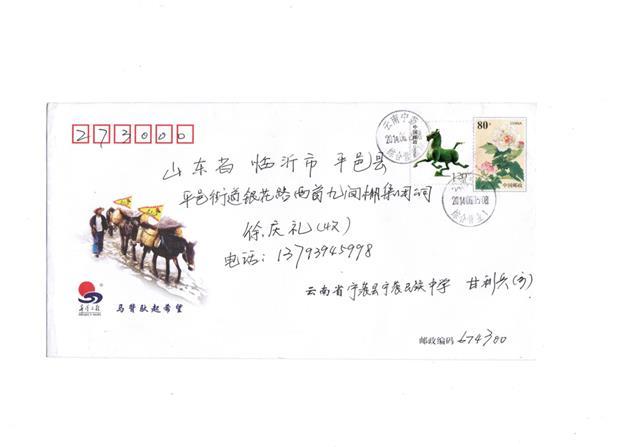 273000
云南宁蒗
2014.06.
中国邮政
1.20
80分
中国邮政
2014.06.15.08
山东省 临沂市 平邑县
平邑街道银花路西首九间棚集团公司
徐庆礼(收)
电话: 13793945998
云南省宁蒗县宁蒗民族中学 甘利兵(寄)
马背驮起希望
邮政编码 674300